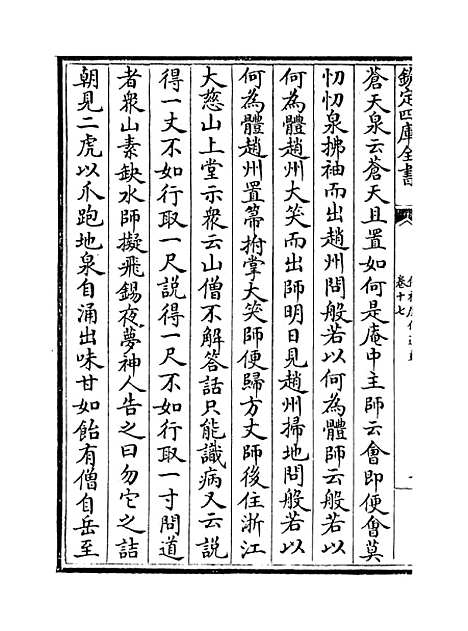 欽定四庫全書
卷十七
蒼天泉云蒼天且置如何是庵中主師云會即便會莫
忉忉泉拂袖而出趙州問般若以何為體師云般若以
何為體趙州大笑而出師明日見趙州掃地問般若以
何為體趙州置箒拊掌大笑師便歸方丈師後住浙江
大慈山上堂示衆云山僧不解答話只能識病又云說
得一丈不如行取一尺說得一尺不如行取一寸問道
者衆山素缺水師擬飛錫夜夢神人告之曰勿它之詰
朝見二虎以爪跑地泉自涌出味甘如飴有僧自岳至